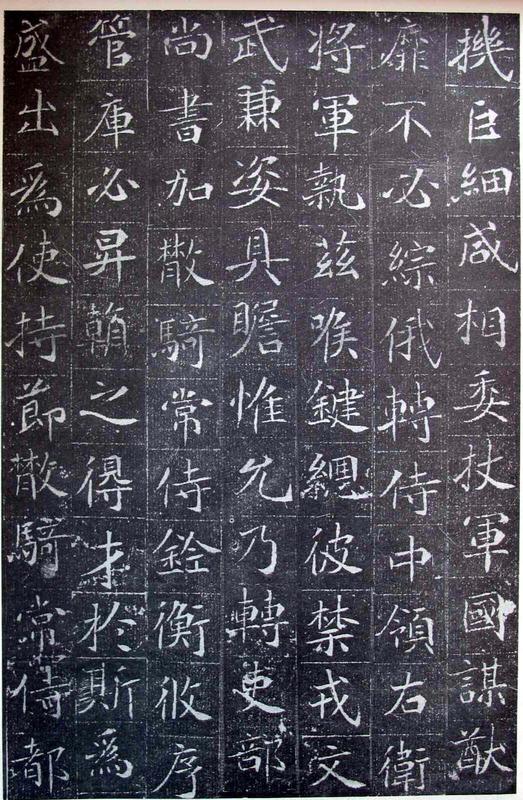 機巨細咸相委扙軍國謀猷
靡不必綜俄轉侍中領右衛
將軍執茲喉鍵總彼禁戎文
武兼姿具瞻惟允乃轉吏部
尚書加散騎常侍銓衡攸序
管庫必昇翰之得才於斯爲
盛出爲使持節散騎常侍都